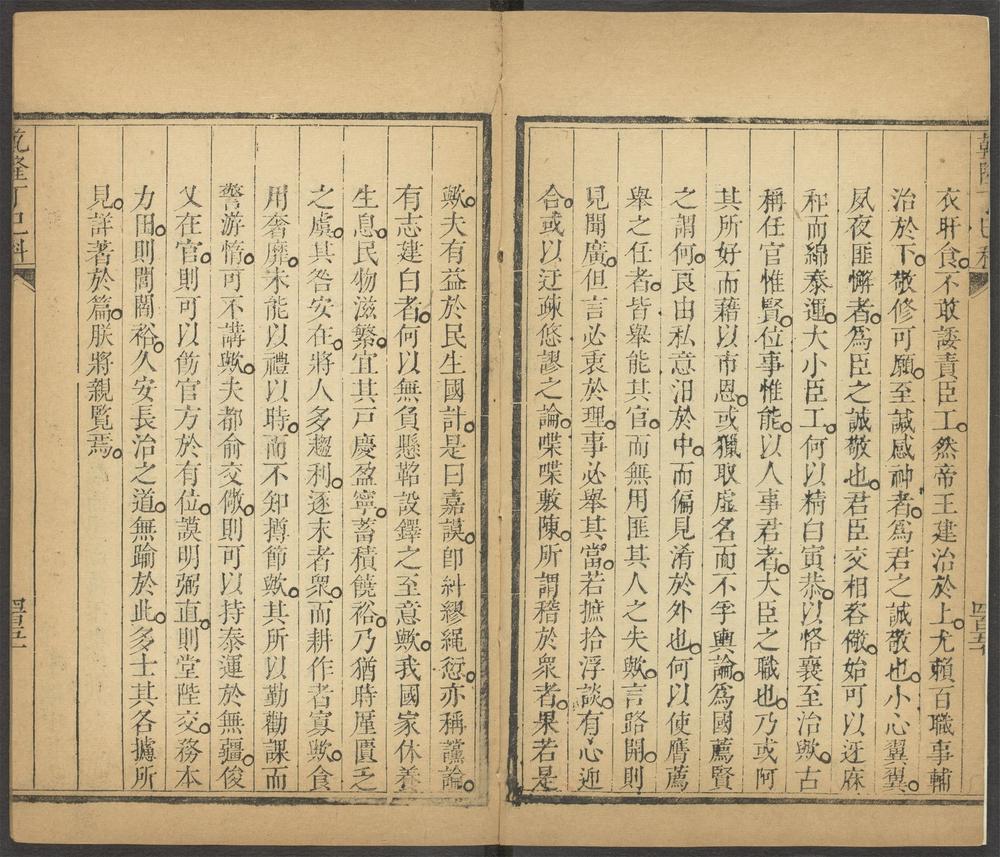 衣旰食。不敢諉責臣工。然帝王建治於上。尤賴百職事輔
治於下。敬修可願。至諴感神者。為君之誠敬也。小心翼翼。
夙夜匪懈者。為臣之誠敬也。君臣交相咨儆。始可以迓庥
和而綿泰運。大小臣工。何以精白寅恭。以恪襄至治歟。古
稱任官惟賢。位事惟能。以人事君者。大臣之職也。乃或阿
其所好而藉以市恩。或獵取虛名而不孚輿論。為國薦賢
之謂何。良由私意汨於中。而偏見淆於外也。何以使膺薦
舉之任者。皆舉能其官。而無用匪其人之失歟。言路開。則
見聞廣。但言必衷於理。事必舉其當。若摭拾浮談。有心迎
合。或以迂疎悠謬之論。喋喋敷陳。所謂稽於衆者。果若是
歟。夫有益於民生國計。是曰嘉謨。卽糾繆繩愆。亦稱讜論。
有志建白者。何以無負懸鞀設鐸之至意歟。我國家休養
生息。民物滋繁。宜其戸慶盈寧。蓄積饒裕。乃猶時厪匱乏
之虞。其咎安在。將人多趨利。逐末者衆。而耕作者寡歟。食
用奢靡。未能以禮以時。而不知撙節歟。其所以勤勸課而
警游惰。可不講歟。夫都俞交儆。則可以持泰運於無疆。俊
乂在官。則可以飭官方於有位。謨明弼直。則堂陛交。務本
力田。則閭閻裕。久安長治之道。無踰於此。多士其各攄所
見。詳著於篇。朕將親覧焉。
乾隆丁巳科